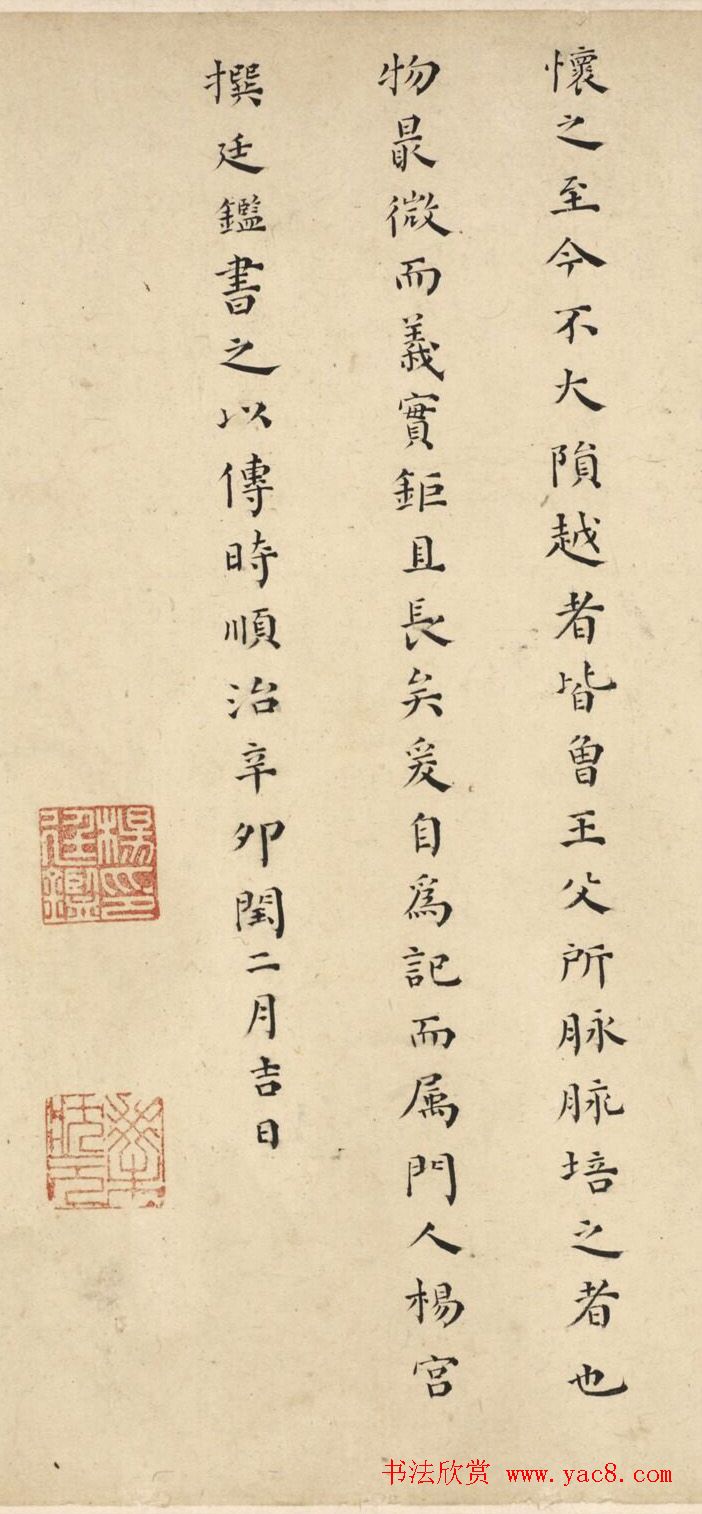 懷之至今不大隕越者皆曾王父所脉脉培之者也
物最微而義實鉅且長矣爰自為記而属門人楊宮
撰廷鑑書之以傳時順治辛卯閏二月吉日
楊廷鑑印
書法欣赏 www.yac8.com